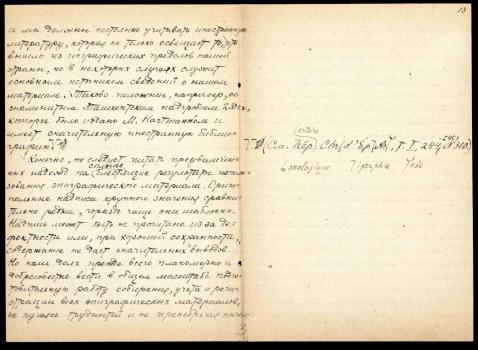 13
и мы должны постоянно учитывать иностранную
литературу, которая не только освещает то, что
вышло из географических пределов нашей
страны, но в некоторых случаях служит
основным источником сведений о нашем
материале. Таково положение, например, со
знаменитым Ташкентским надгробием 230 г. х.,
которое было издано М. Hartmann'ом и
имеет значительную иностранную библио-
графию
Конечно, не следует питать преувеличен-
ных надежд на блестящие результаты исполь-
зования эпиграфического материала. Ориги-
нальные надписи крупного значения сравни-
тельно редки, гораздо чаще они шаблонны.
Надпись может быть не прочитана из-за де-
фектности или, при хорошей сохранности,
содержание не даст значительных выводов.
Но наш долг прежде всего планомерно и
добросовестно вести в общем масштабе подго-
товительную работу собирания, учета и реги-
страции всех эпиграфических материалов,
не пугаясь трудностей и не пренебрегая никак
(См. Répertoire t. I, 244-245, № 310.)
Chronologique Épigraphie Arabe